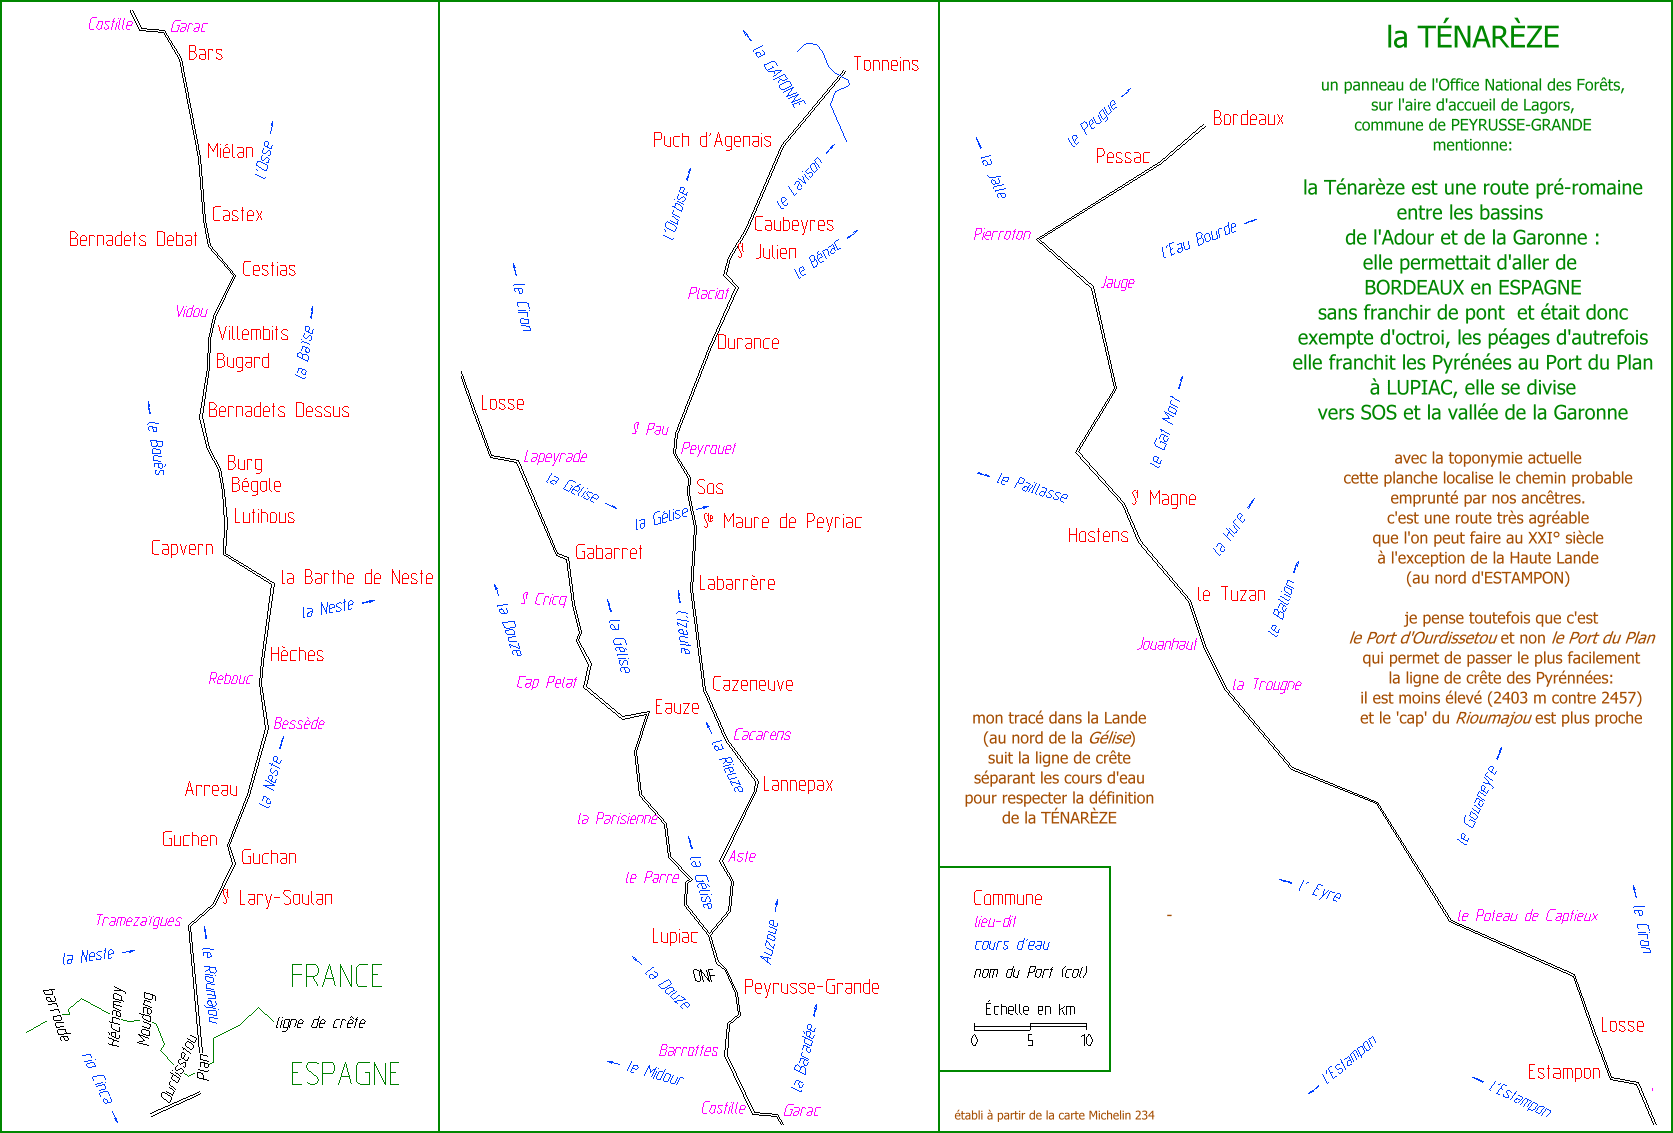 Castille
Garac
Bars
Miélan
l'Osse
Castex
Bernadets Debat
Cestias
Vidou
Villembits
la Baïse
Bugard
Bernadets Dessus
le Bouès
Burg
Bégole
Lutihous
Capvern
la Barthe de Neste
la Neste
Hèches
Rebouc
Bessède
la Neste
Arreau
Guchen
Guchan
St Lary-Soulan
Tramezaïgues
la Neste
le Rioumajou
FRANCE
barroude
Héchampy
Moudang
ligne de crête
Ourdissetou
Plan
rio Cinca
ESPAGNE
la GARONNE
Tonneins
Puch d'Agenais
le Lavison
l'Ourbise
Caubeyres
St Julien
le Bénac
le Ciron
Placiot
Durance
Losse
St Pau
Peyrouet
Lapeyrade
la Gélise
Sos
la Gélise
Ste Maure de Peyriac
Gabarret
Labarrère
St Cricq
la Douze
la Gélise
l'Izaute
Cap Pelat
Cazeneuve
Eauze
Cacarens
la Rieuze
Lannepax
la Parisienne
Aste
le Parre
la Gélise
Lupiac
Auzoue
ONF
la Douze
Peyrusse-Grande
Barrottes
la Baradée
le Midour
Castille
Garac
le Peugue
Bordeaux
Pessac
la Jalle
Pierroton
l'Eau Bourde
Jauge
le Gat Mort
le Paillasse
St Magne
Hostens
la Hure
le Tuzan
le Ballion
Jouanhaut
la Trougne
le Gouaneyre
l'Eyre
le Poteau de Captieux
le Ciron
Losse
Estampon
l'Estampon
l'Estampon
la TÉNARÈZE
un panneau de l'Office National des Forêts,
sur l'aire d'accueil de Lagors,
commune de PEYRUSSE-GRANDE
mentionne:
la Ténarèze est une route pré-romaine
entre les bassins
de l'Adour et de la Garonne :
elle permettait d'aller de
BORDEAUX en ESPAGNE
sans franchir de pont et était donc
exempte d'octroi, les péages d'autrefois
elle franchit les Pyrénées au Port du Plan
à LUPIAC, elle se divise
vers SOS et la vallée de la Garonne
avec la toponymie actuelle
cette planche localise le chemin probable
emprunté par nos ancêtres.
c'est une route très agréable
que l'on peut faire au XXI° siècle
à l'exception de la Haute Lande
(au nord d'ESTAMPON)
je pense toutefois que c'est
le Port d'Ourdissetou et non le Port du Plan
qui permet de passer le plus facilement
la ligne de crête des Pyrénnées:
il est moins élevé (2403 m contre 2457)
et le 'cap' du Rioumajou est plus proche
mon tracé dans la Lande
(au nord de la Gélise)
suit la ligne de crête
séparant les cours d'eau
pour respecter la définition
de la TÉNARÈZE
Commune
lieu-dit
cours d'eau
nom du Port (col)
Échelle en km
0 5 10
établi à partir de la carte Michelin 234